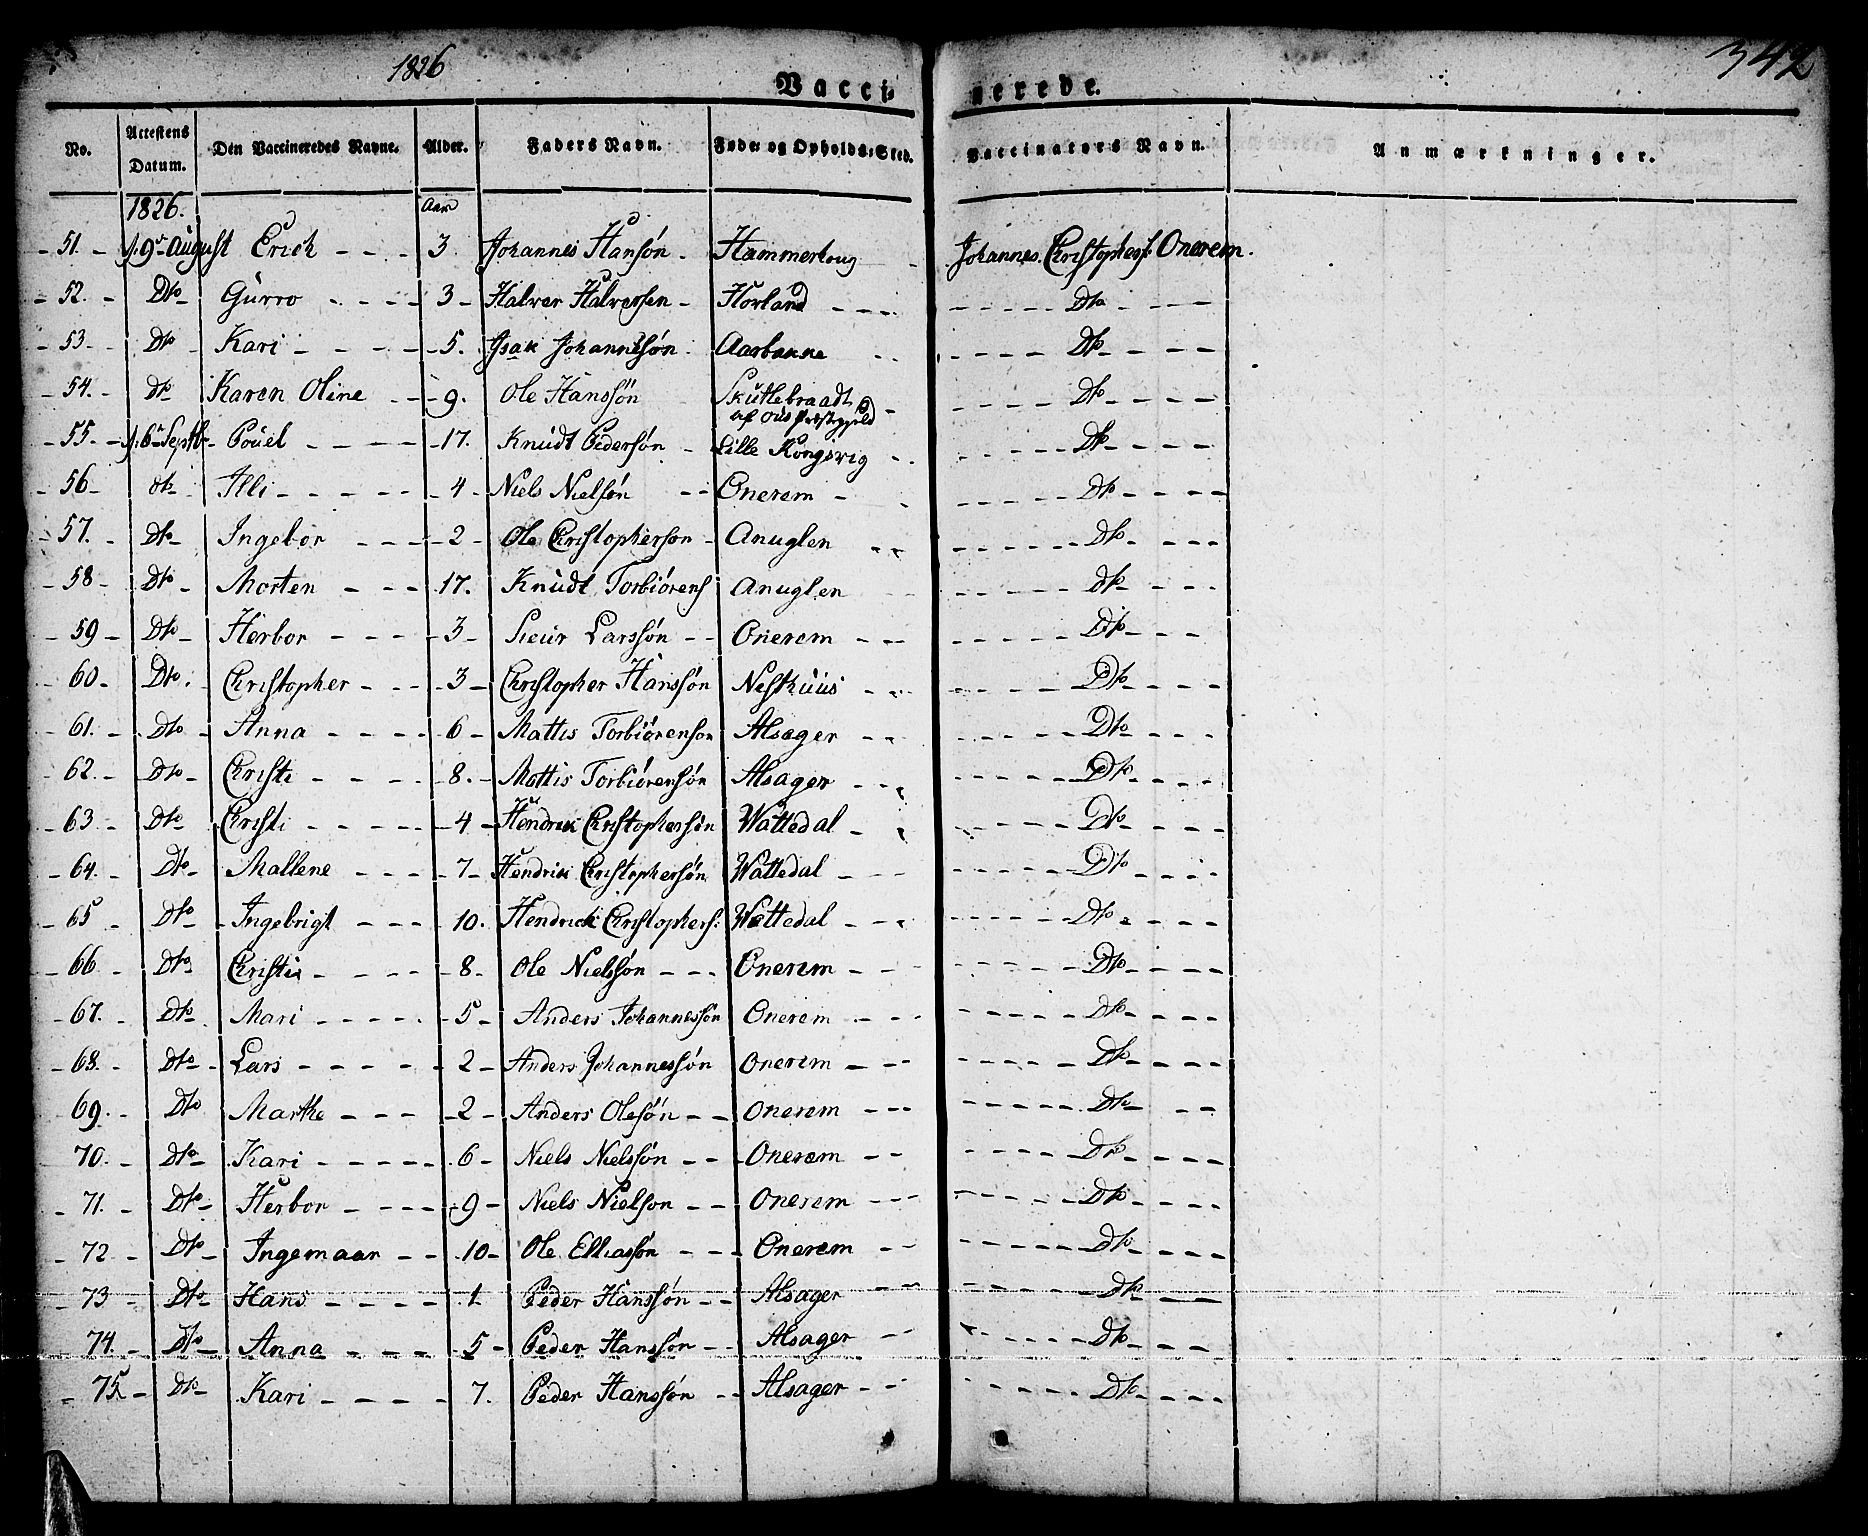 1826
342
Vaccinerede.
No. Attestens Datum. Den Vaccineredes Navne. Alder. Faders Navn. Føde- og Opholds-Sted. Vaccinators Navn. Anmærkninger.
1826. Aar
51. 9 August Erich 3. Johannes Hansøn Hammerhoug Johannes Christophers: Onerem.
52. Dto Gurro 3 Halver Halversen Horland Dto
53. Dto Kari 5. Isak Johannesøn Aarbakke Dto
54. Dto Karen Oline 9. Ole Hanssøn Skuttebraadt Dto
af Ous Præstegjeld
55. 6 Septbr Pouel 17. Knudt Pedersøn Lille Kongsvig Dto
56 dto Illi 4 Niels Nielsøn Onerem Dto
57. Dto Ingebor 2 Ole Christophersøn Anuglen Dto
58 Dto Morten 17. Knudt Torbiørens Anuglen dto
59 Dto Herbor 3 Sieur Larssøn Onerem Dto
60 Dto. Christopher 3 Christopher Hanssøn Neshuus Dto
61. Dto Anna 6 Mattis Torbiørensøn Alsager Dto
62. Dto Christi 8. Mattis Torbiørensøn Alsager Dto
63 Dto Christi 4 Hendrik Christophersøn Wattedal Dto
64. Dto Mallene 7 Hendrik Christophersøn Wattedal Dto
65 Dto Ingebrigt 10. Hendrick Christophers: Wattedal Dto
66 Dto Christi 8. Ole Nielssøn Onerem Dto
67. Dto Mari 5 Anders Johannessøn Onerem Dto
68. Dto Lars 2 Anders Johannessøn Onerem Dto
69. Dto Marthe 2 Anders Olesøn Onerem Dto
70. Dto Kari 6 Niels Nielssøn Onerem Dto
71. Dto Herbor 9 Niels Nielsøn Onerem Dto
72 Dto Ingemaar 10 Ole Elliasøn Onerem Dto
73 Dto Hans 1 Peder Hanssøn Alsager Dto
74. Dto Anna 5 Peder Hanssøn Alsager Dto
75. Dto Kari 7. Peder Hanssøn Alsager Dto